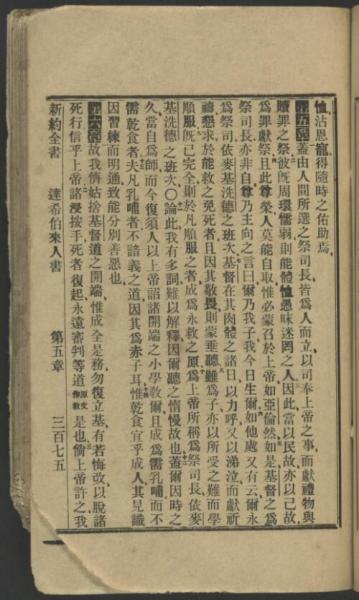 恤沾恩寵得隨時之佑助焉
第五章蓋由人間所選之祭司長皆爲人而立以司奉上帝之事而獻禮物與
贖罪之祭彼既周環懦弱則能體恤愚昧迷罔之人因此當以民故亦以己故
爲罪獻祭且此尊榮人莫能自取惟必蒙召於上帝如亞倫然如是基督之爲
祭司長亦非自尊乃主向之言曰爾乃我子我今日生爾如他處又有云爾永
爲祭司依麥基洗德之班次基督在其肉體之諸日以力呼又以涕泣而獻祈
禱懇求於能救之免死者且因其敬畏則蒙垂聽雖爲子亦以所受之難而學
順服既已完全則於凡順服之者成爲永救之原爲上帝所稱爲祭司長依麥
基洗德之班次〇論此我有多詞難以解釋因爾聽之惰慢故也蓋爾因時之
久當自爲師而今復須人以上帝諸詔開端之小學教爾且成爲需乳哺而不
需乾食者夫凡乳哺者不諳義之道因其爲赤子耳惟乾食宜乎成人其見識
因習練而明通致能分別善惡也
第六章故我儕姑捨基督道之開端惟成全是務勿復立基有若悔改以脫諸
死行信乎上帝諸浸按手死者復起永遠審判等道原文作教是也倘上帝許之我
新約全書 達希伯來人書 第五章 三百七五